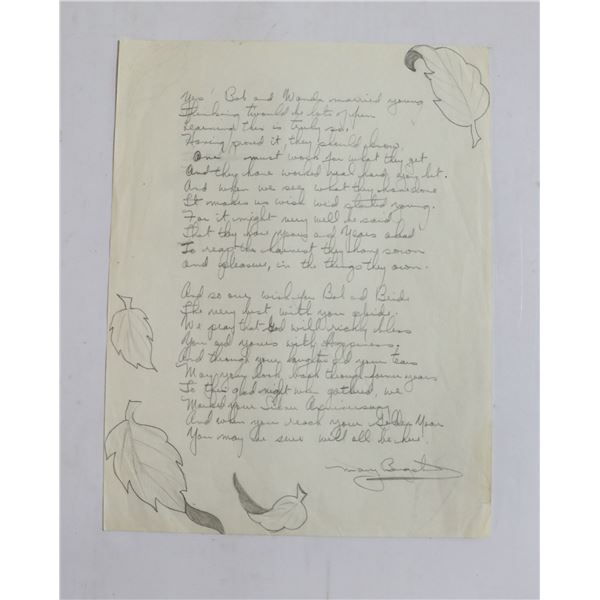 Yes! Bob and Wanda married young
Thinking twould be lots of fun
Learning this is truly so.
Having proved it, they should know.
One must work for what they get
And they have worked real hard, you bet.
And when we see what they have done
It makes us wish we'd started young.
For it might very well be said
That they have years and years ahead
To reap the harvest they have sown
and pleasure, in the things they own.
And so our wish for Bob and Bride
The very best with you abide.
We pray that God will richly bless
You and yours with Happiness.
And through your laughter and your tears
May you look back through former years
To this glad night when gathered, we
Marked your Silver Anniversary
And when you reach your Golden Year
You may be sure we'll all be here.
Mary